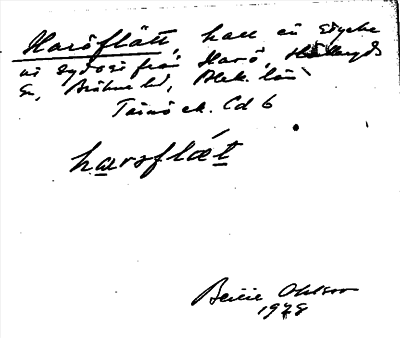 Haröflätt, kall en stycke
no sydost från Harö, Hällaryds
sn, Bräkne hd, Blek. län
Tärnö ek. Cd 6
harsflæt
Bertil Ohlsson
1978